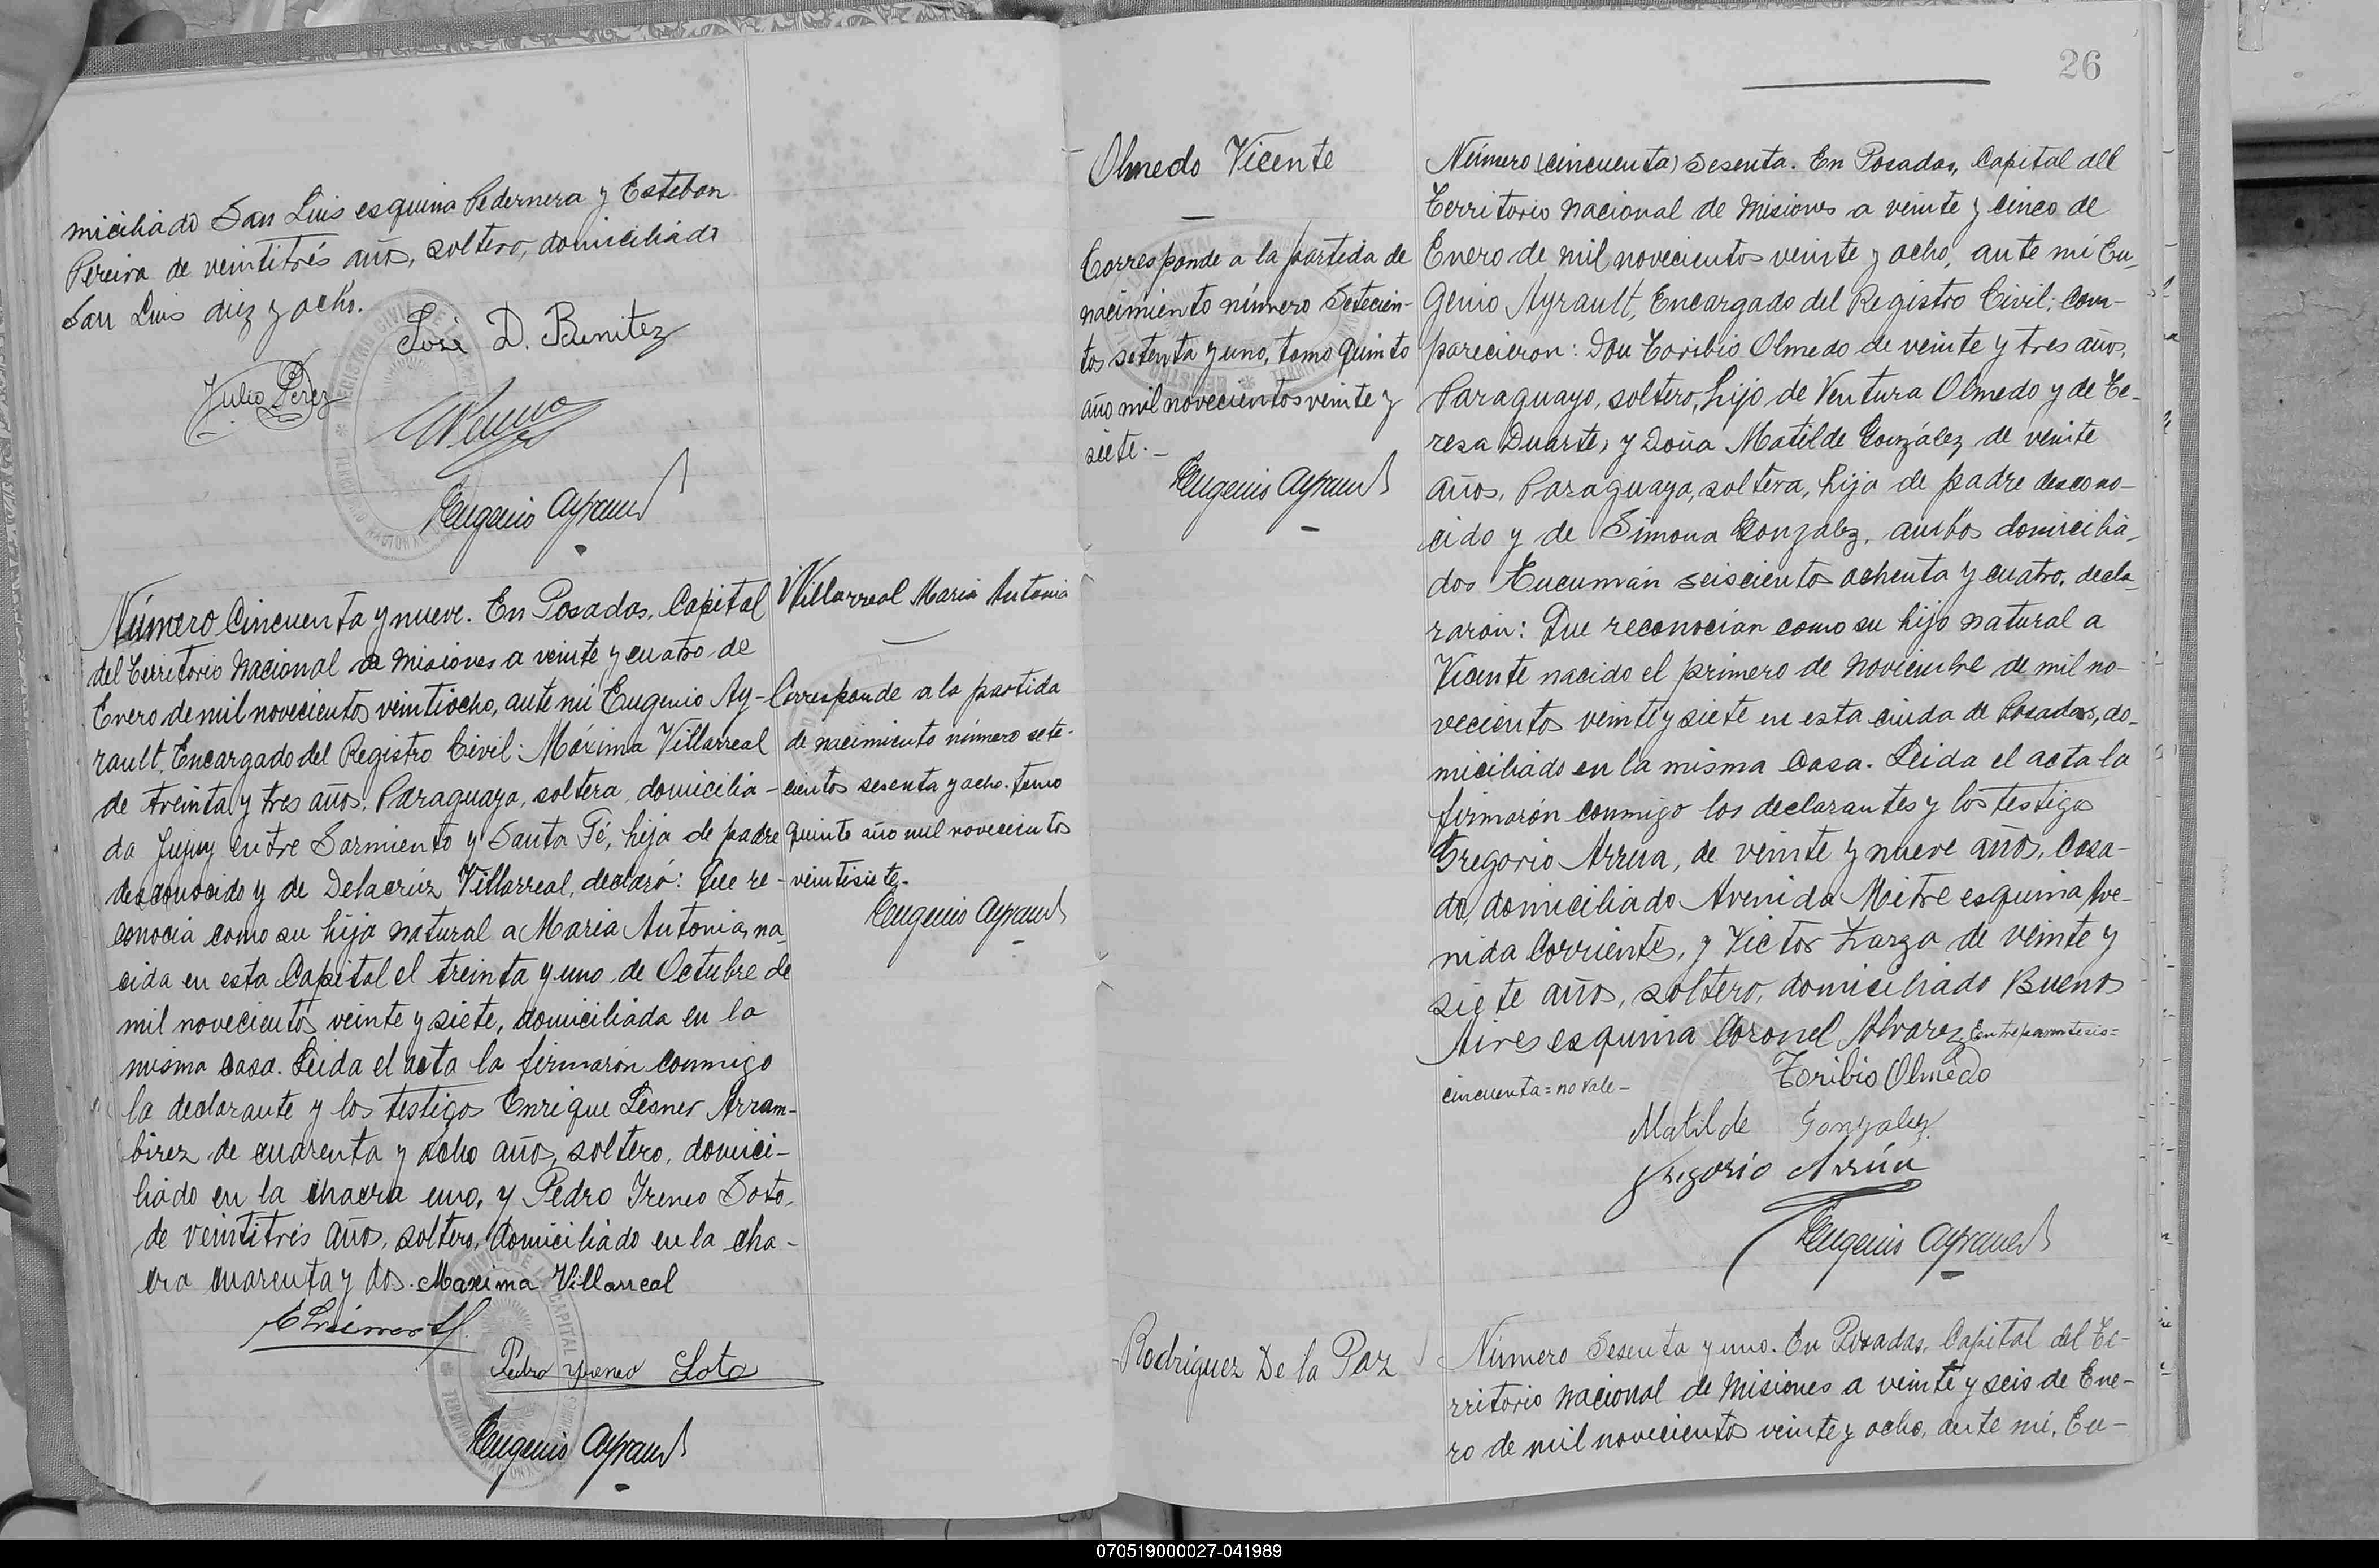 miciliado San Luis esquina Pedernera y Esteban
Pereira de veintitrés años, soltero, domiciliado
San Luis diez y ocho.
José D. Benitez
Julio Perez
Eugenio Ayrault
Número Cincuenta y nueve. En Posadas, Capital
del Territorio Nacional de Misiones a veinte y cuatro de
Enero de mil novecientos veintiocho, ante mi Eugenio Ay-
rault, Encargado del Registro Civil: Máxima Villarreal
de treinta y tres años, Paraguaya, soltera, domicilia-
da Jujuy entre Sarmiento y Santa Fé, hija de padre
desconocido y de Delacrúz Villarreal, declaró: Que re-
conocia como su hija natural a Maria Antonia, na-
cida en esta Capital el treinta y uno de Octubre de
mil novecientos veinte y siete, domiciliada en la
misma casa. Leida el acta la firmarón conmigo
la declarante y los testigos Enrique Lesner Arram-
birez de cuarenta y ocho años, soltero, domici-
liado en la chacra uno, y Pedro Ireneo Soto,
de veintitrés años, soltero, domiciliado en la cha-
cra cuarenta y dos. Maxima Villarreal
Pedro Yreneo Soto
Eugenio Ayrault
Villarreal Maria Antonia
Corresponde a la partida
de nacimiento número sete-
cientos sesenta y ocho. tomo
quinto año mil novecientos
veintisiete.
Eugenio Ayrault
26
Olmedo Vicente
Corresponde a la partida de
nacimiento número Setecien-
tos setenta y uno, tomo quinto
año mil novecientos veinte y
siete.-
Eugenio Ayrault
Número (cincuenta) Sesenta. En Posadas, Capital del
Territorio Nacional de Misiones a veinte y cinco de
Enero de mil novecientos veinte y ocho, ante mi Eu-
genio Ayrault, Encargado del Registro Civil: Com-
parecieron: Don Toribio Olmedo de veinte y tres años,
Paraguayo, soltero, hijo de Ventura Olmedo y de Te-
resa Duarte, y Doña Matilde González de veinte
años, Paraguaya, soltera, hija de padre descono-
cido y de Simona Gonzalez, ambos domicilia-
dos Tucumán seiscientos ochenta y cuatro, decla-
rarón: Que reconocian como su hijo natural a
Vicente nacido el primero de Noviembre de mil no-
vecientos veinte y siete en esta ciuda de Posadas, do-
miciliado en la misma Casa. Leida el acta la
firmarón conmigo los declarantes y los testigos
Gregorio Arrua, de veinte y nueve años, Casa-
do, domiciliado Avenida Mitre esquina Ave-
nida Corrientes, y Victor Zarza de veinte y
siete años, soltero, domiciliado Buenos
Aires esquina Coronel Alvarez, Entreparentesis=
cincuenta = no vale -
Toribio Olmedo
Matilde Gonzalez
Gregorio Arrúa
Eugenio Ayrault
Rodríguez De la Paz
Número Sesenta y uno. En Posadas, Capital del Te-
rritorio Nacional de Misiones a veinte y seis de Ene-
ro de mil novecientos veinte y ocho, ante mi, Eu-
070519000027-041989